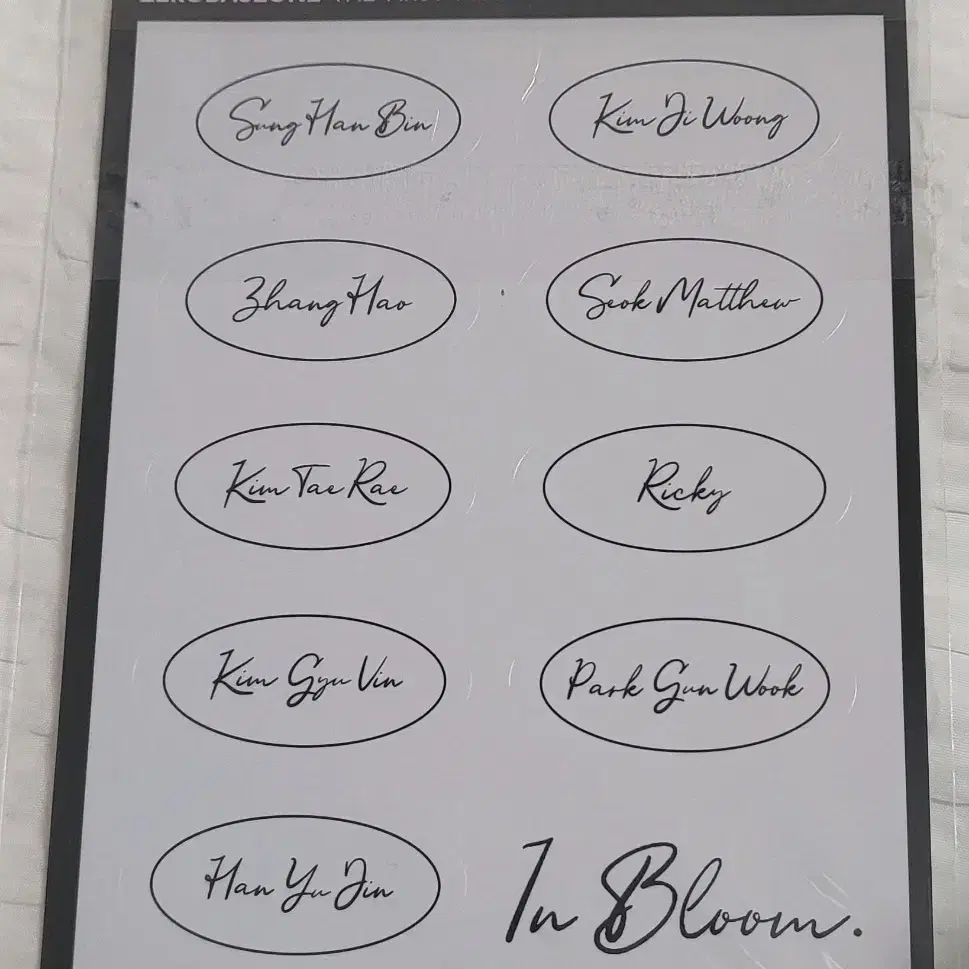 Sung Han Bin
Kim Ji Woong
Zhang Hao
Seok Matthew
Kim Tae Rae
Ricky
Kim Gyu Vin
Park Gun Wook
Han Yu Jin
In Bloom.